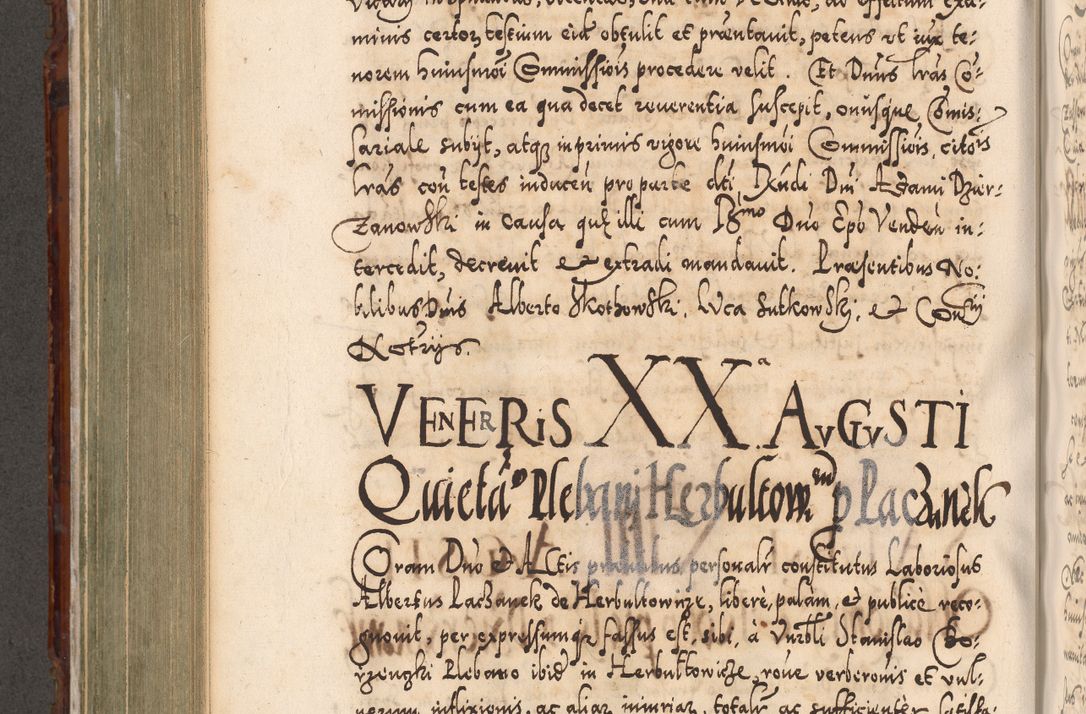 minis certor, testium eid obtulit et præntauit, petens vt iux te-
norem huiusmoi Commissiois procedere velit. Et Dnus lras Co-
missionis cum ea qua decet reuerentia suscepit, onusque Comis-
sariale subijt, atq3 inprimis vigore huiusmoi Commissiois, citois
lras con testes inducen pro parte dti Rndi Dni Adami Dzier-
zanowski in causa quæ illi cum Rssmo Dno Epo Venden in-
tercedit, decreuit & extradi mandauit. Præsentibus No-
bilibus Dnis Alberto Skothowski, Luca Sutkowski, &
Notrijs.
VENERIS XX.a AVGVSTI
Quietao Plebani Herbultowien p Laczanek
Coram Dno & Actis præntibus personalr constitutus Laboriosus
Albertus Laczanek de Herbultowicze, libere, palam, & publice reco-
gnouit, per expressumqr fassus est, sibi, a Vnrbli Stanislao Ko-
rzengki Plebano ibid in Herbultowicze, roue verberonis et vul-
nerum inflixionis, ac aliar iniuriar, totalr ac sufficienter satisfa-